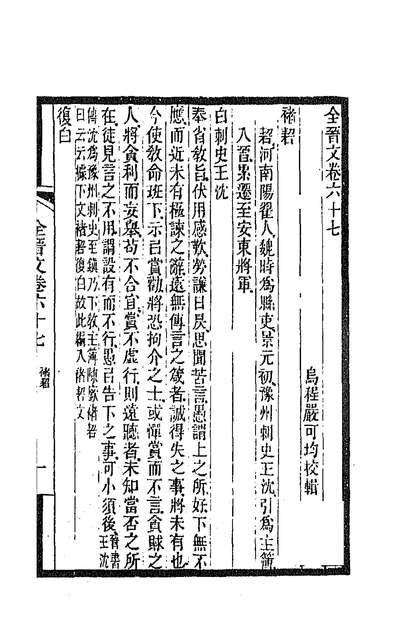 全晉文卷六十七
烏程嚴可均校輯
褚䂮
䂮河南陽翟人魏時爲縣吏景元初豫州刺史王沈引爲主簿
入晉累遷至安東將軍
白刺史王沈
奉省教旨伏用感歎勞謙日昃思聞苦言愚謂上之所好下無不
應而近未有極諫之辭遠無傳言之箴者誠得失之事將未有也
今使教命班下示㠯賞勸將恐拘介之士或憚賞而不言貪賕之
人將貪利而妄舉苟不合宜賞不虛行則遠聽者未知當否之所
在徒見言之不用謂設有而不行愚㠯告下之事可小須後晉書王沈
傳沈爲豫州刺史至鎮乃下教主簿陳廞褚䂮
曰云云據下文褚䂮復白故此編入褚䂮文
復白
全晉文卷六十七
褚䂮
一